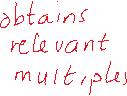 obtains
relevant
multiples